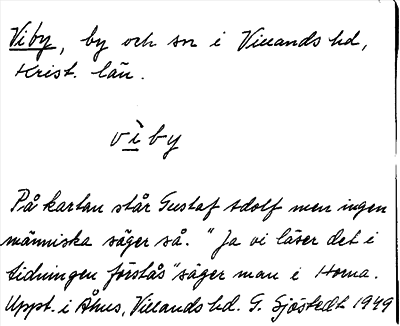 Viby, by och sn i Villands hd,
Krist. län.
vìby
På kartan står Gustaf Adolf men ingen
människa säger så. "Ja vi läser det i
tidningen förstås" säger man i Horna.
Uppt. i Åhus, Villands hd. G. Sjöstedt 1949